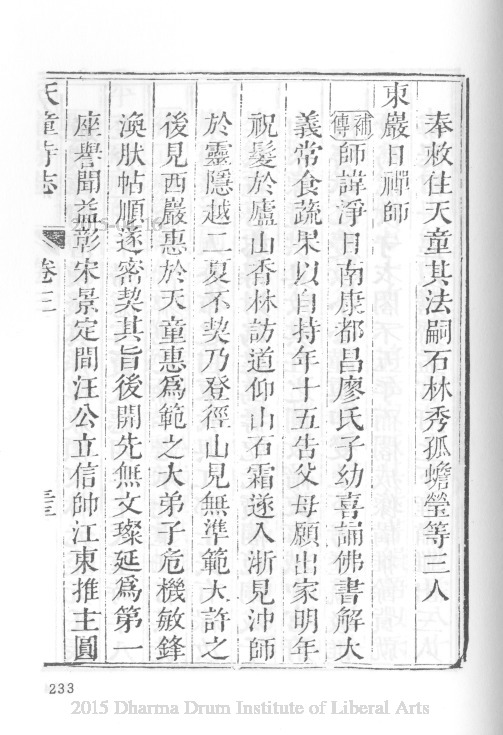 奉敕住天童其法嗣石林秀孤蟾瑩等三人
東巖日禪師
補傳師諱淨日南康都昌廖氏子幼喜誦佛書解大
義常食蔬果以自持年十五告父母願出家明年
祝髮於廬山香林訪道仰山石霜遂入浙見沖師
於靈隱越二夏不契乃登徑山見無準範大許之
後見西巖惠於天童惠爲範之大弟子危機敏鋒
渙肰帖順遂密契其旨後開先無文璨延爲第一
座譽聞益彰宋景定間汪公立信帥江東推主圓
天童寺志
卷三
233
2015 Dharma Drum Institute of Liberal Arts